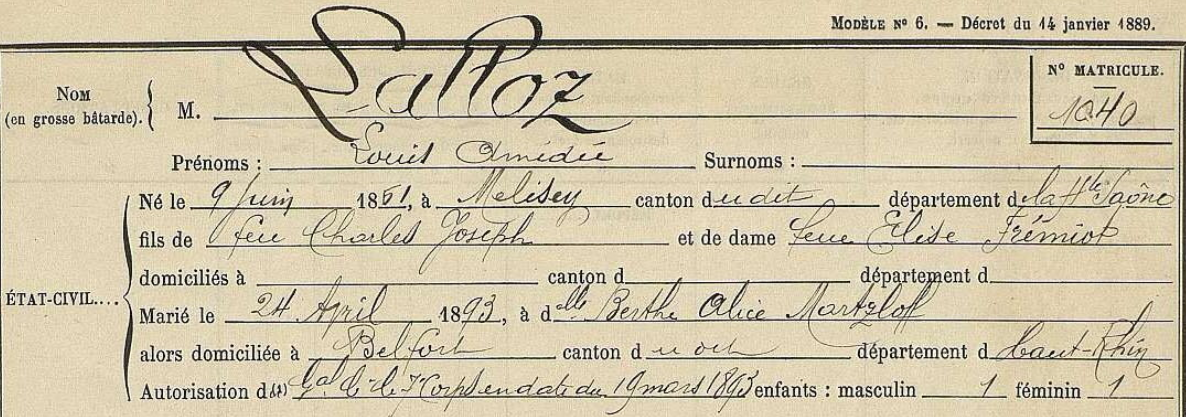 MODÈLE Nº 6. — Décret du 14 janvier 1889.
Nº MATRICULE.
1040
NOM (en grosse bâtarde). M. Lalloz
Prénoms : Louis Amédée Surnoms :
ÉTAT-CIVIL....
Né le 9 Juin 1851, à Melisey canton dudit département d la Hte Saône
fils de feu Charles Joseph et de dame feue Elise Frémiot
domiciliés à canton d département d
Marié le 24 Avril 1893, à dlle Berthe Alice Martzloff
alors domiciliée à Belfort canton d département d Haut-Rhin
Autorisation d Gal Ct le 7e Corps en date du 19 mars 1893 enfants : masculin 1 féminin 1